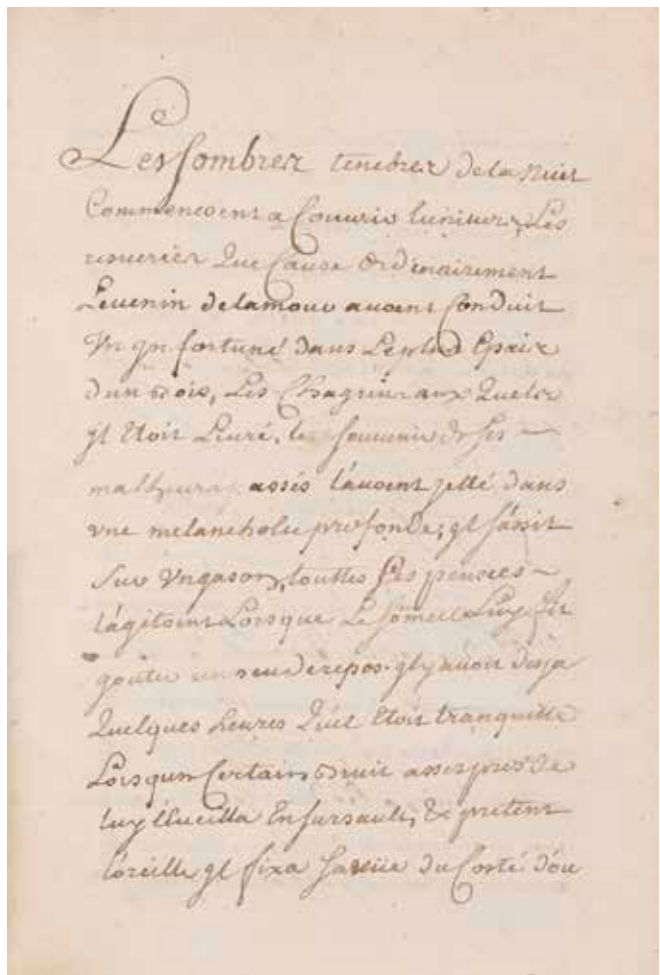 Les sombres tenebres de la Nuit
Commencoent a Couurir luniuers, Les
resueries Que Cause Ordinairement
Leuenin delamour auoent Conduit
Vn jnfortuné dans Leplus Epaix
dun Bois, Les Chagrins aux Quels
jl Etoit Liuré, le souuenir de ses
malheurs assés l'auoent jetté dans
vne melancholie profonde; jl sássit
Sur Vngason, touttes ses pensées
l'agitoint Lorsque Le sómeil Luy fit
goûter un peu derepos. jl y auoit desja
Quelques heures Quil Etoit tranquille
Lorsqun Certain Bruit assez pres de
luy l'Eueilla En sursault, & pretent
l'oreille jl fixa sa vüe du Costé dóu